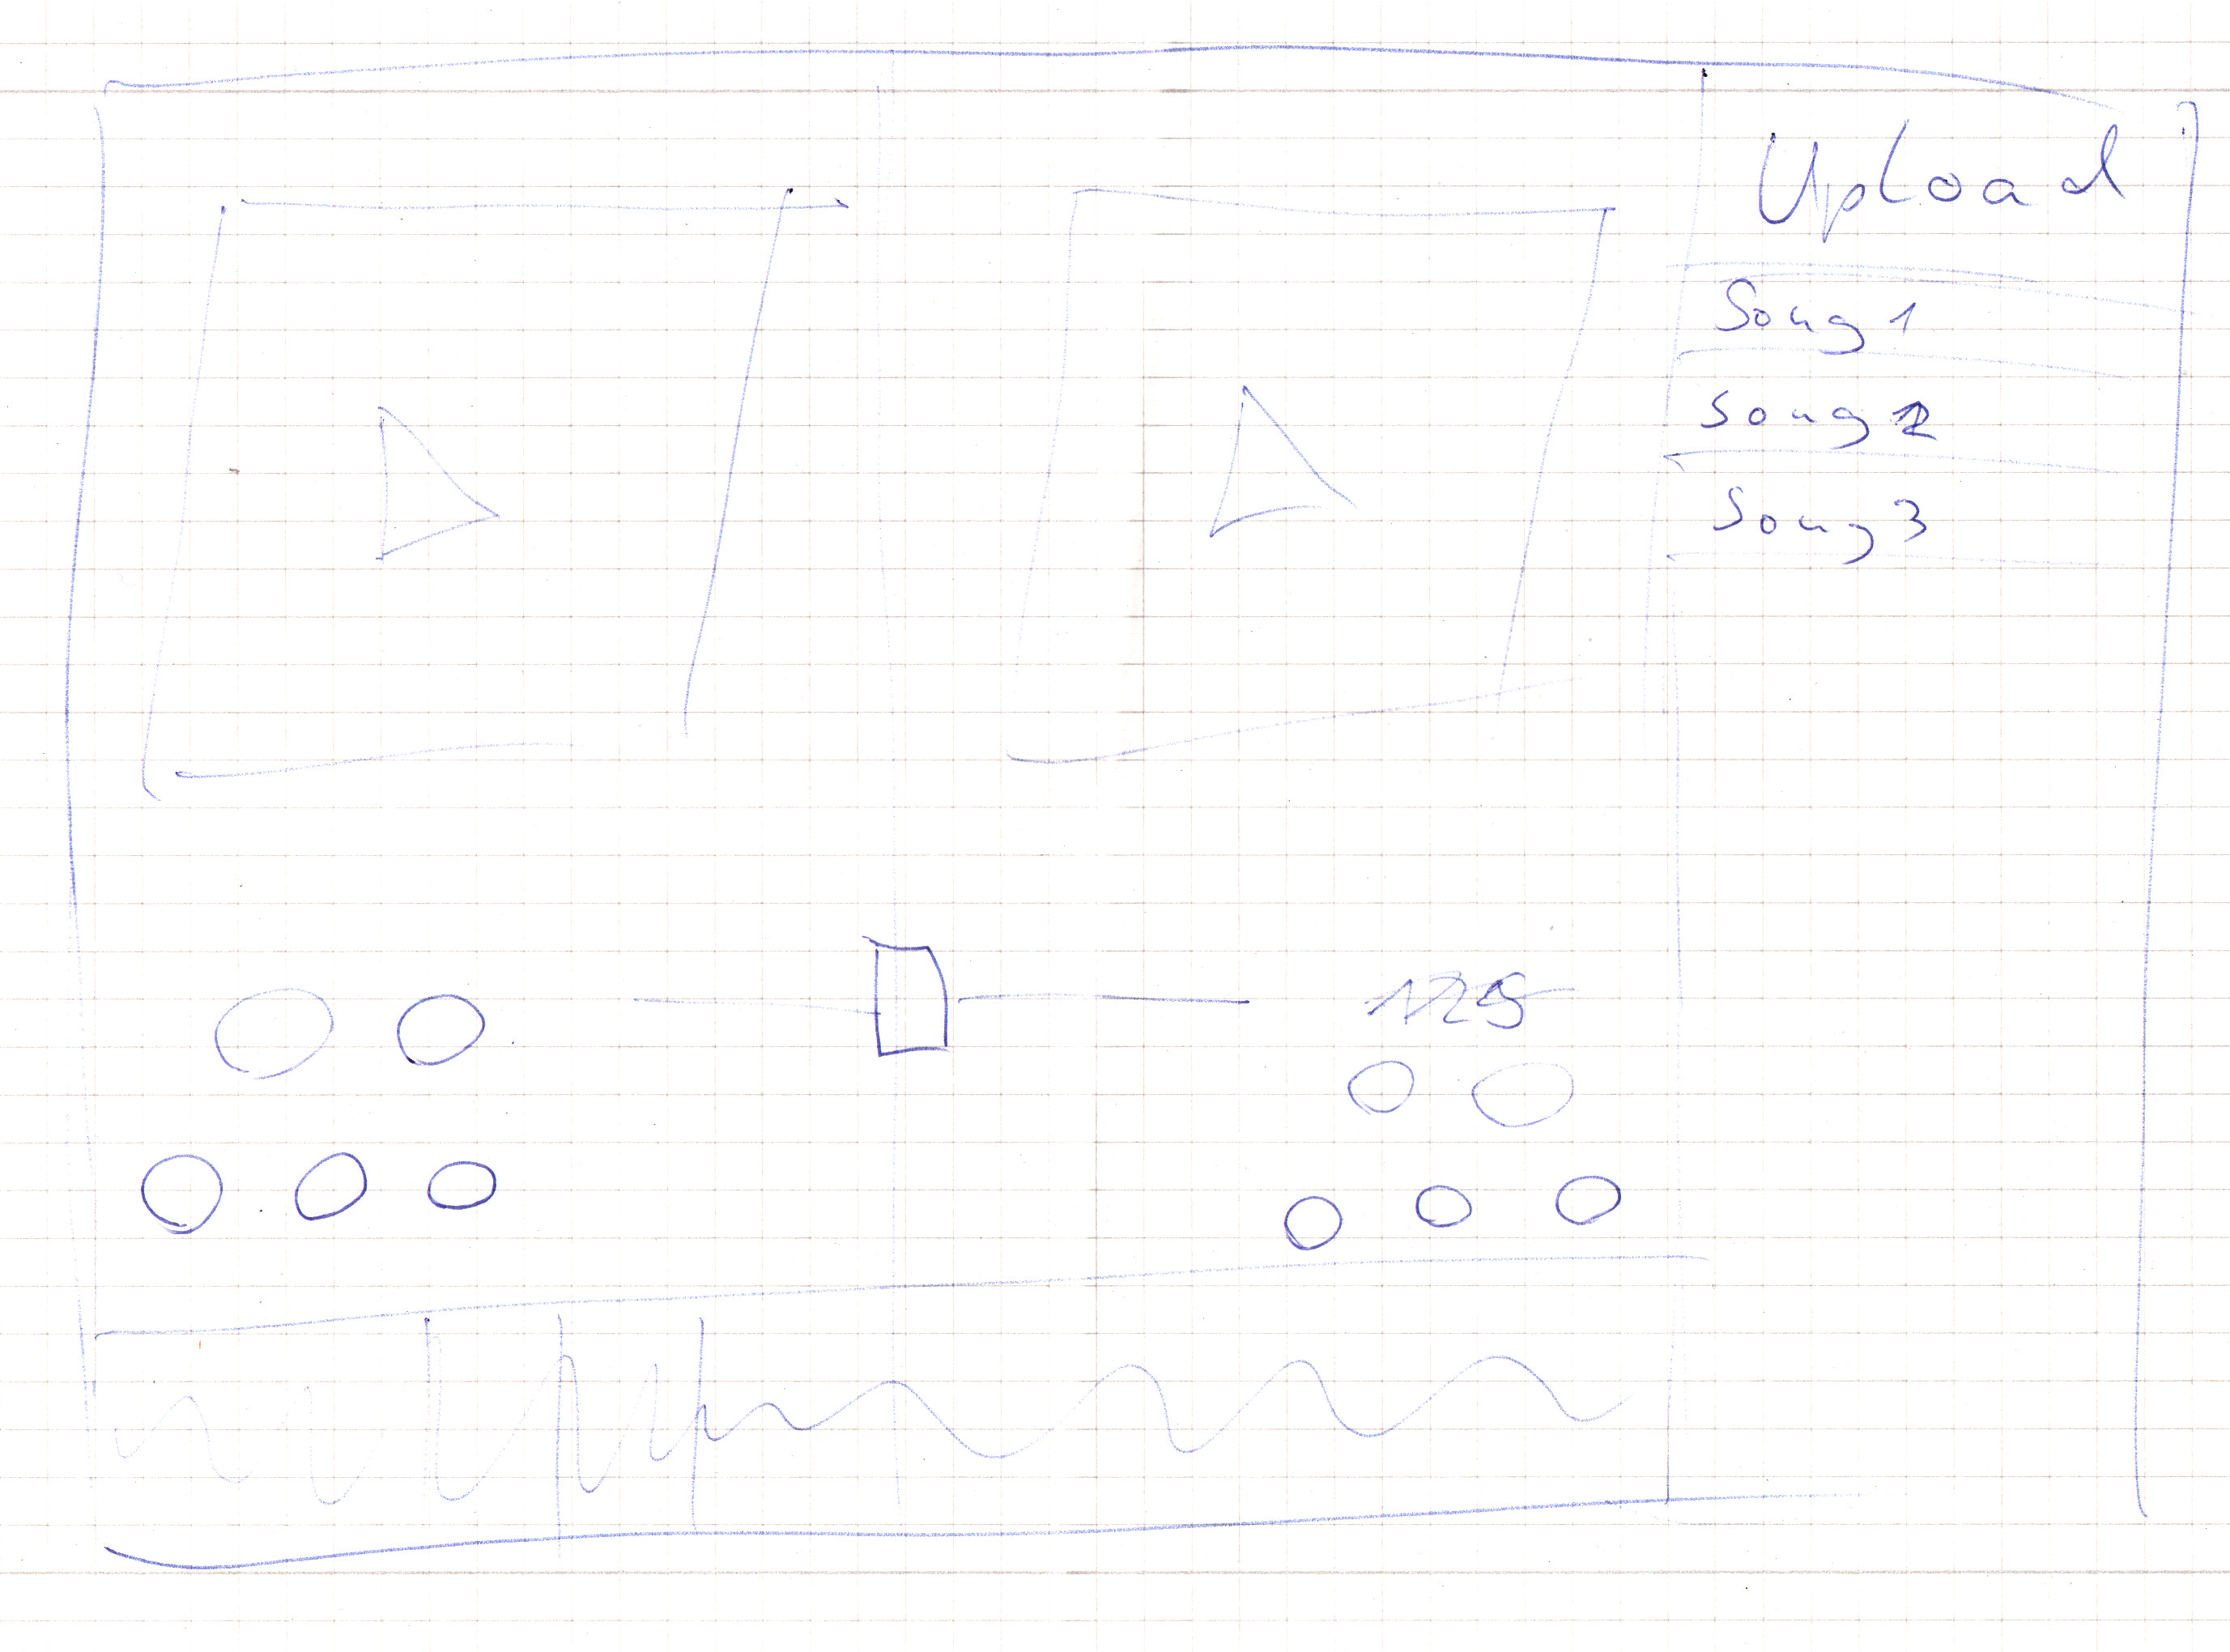 Upload
Song 1
Song 2
Song 3
125